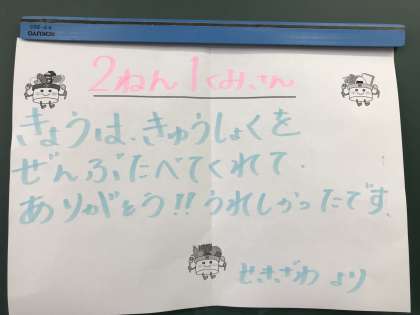 KOKUYO
2ねん1くみ.さん
きょうは、きゅうしょくを
ぜんぶたべてくれて.
ありがとう!!うれしかったです.
せきざわ より